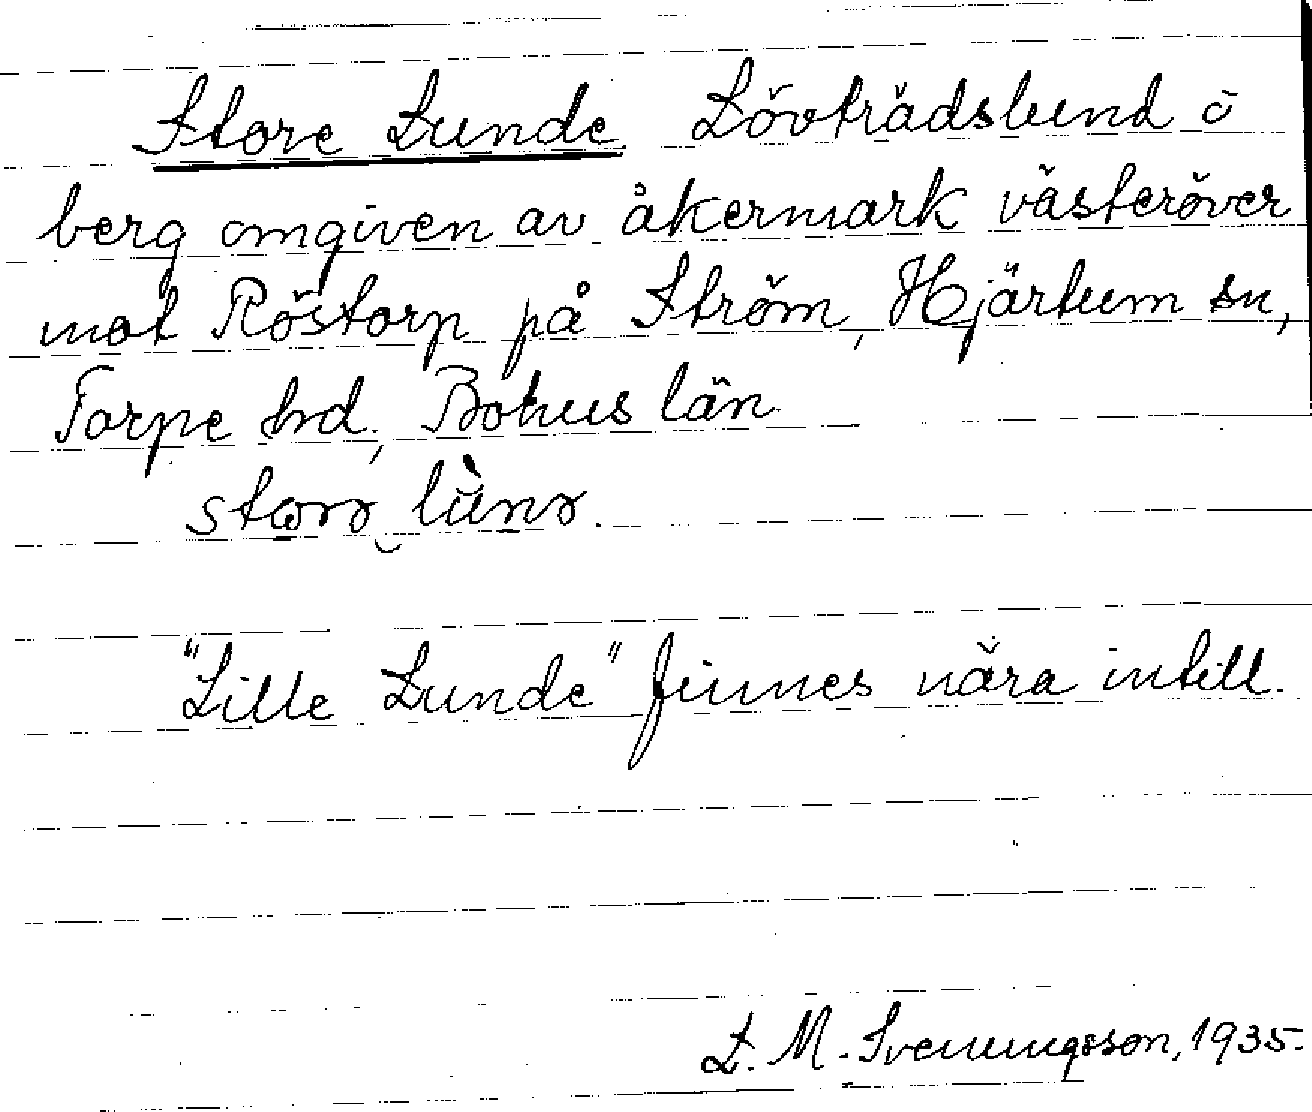 Store Lunde Lövträdslund å
berg omgiven av åkermark västeröver
mot Röstorp på Ström, Hjärtum sn,
Torpe hd, Bohus län
"Lille Lunde" finnes nära intill.
S. M. Svenungsson, 1935.